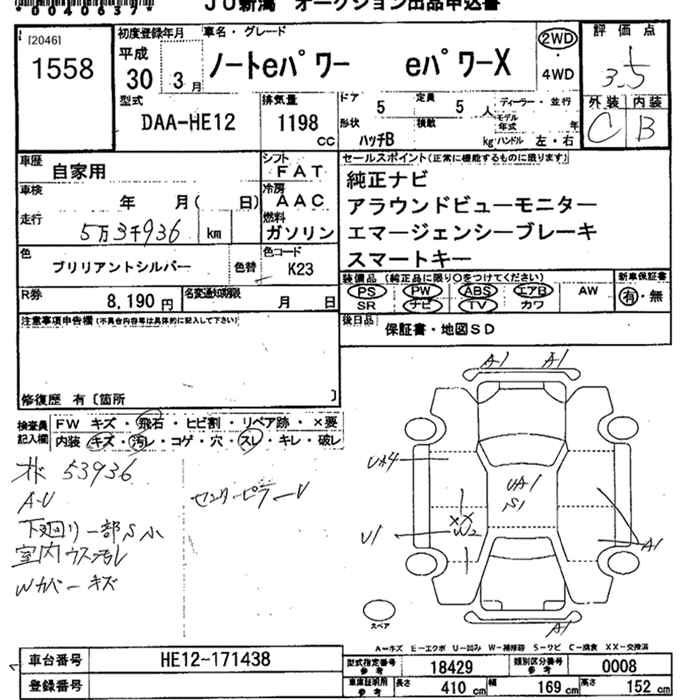 *0040637*
JU新潟 オークション出品申込書
[2046]
1558
初度登録年月
平成
30 3月
車名・グレード
ノートeパワー eパワーX
2WD
・
4WD
評価点
3.5
外装 内装
C B
型式
DAA-HE12
排気量
1198
cc
ドア 5
定員 5 人
ディーラー・並行
形状 ハッチB
積載 kg
モデル年式 年
ハンドル 左・右
車歴
自家用
シフト
FAT
車検
年 月 ( 日)
冷房
AAC
走行
5万3千936 km
燃料
ガソリン
色
ブリリアントシルバー
色替
色コード
K23
R券
8,190円
名変通知期限
月 日
セールスポイント(正常に機能するものに限ります)
純正ナビ
アラウンドビューモニター
エマージェンシーブレーキ
スマートキー
装備品(純正品に限り○をつけてください)
PS PW ABS エアB AW
SR ナビ TV カワ
新車保証書
有・無
後日品
保証書・地図SD
注意事項申告欄(不具合内容等は具体的に記入して下さい)
修復歴 有〔箇所 〕
検査員記入欄
FW キズ・飛石・ヒビ割・リペア跡・×要
内装 キズ・汚レ・コゲ・穴・スレ・キレ・破レ
53936
A・U
下廻り一部S小
室内ウス汚レ
Wカバーキズ
センターピラーU
A1 A1
U*4
UA1
S1
XX
W2
U1
A1
A1
スペア
A-キズ E-エクボ U-凹み W-補修跡 S-サビ C-腐食 XX-交換済
車台番号
HE12-171438
登録番号
型式指定番号
参考
18429
類別区分番号
参考
0008
車庫証明用
参考
長さ 410 cm
幅 169 cm
高さ 152 cm